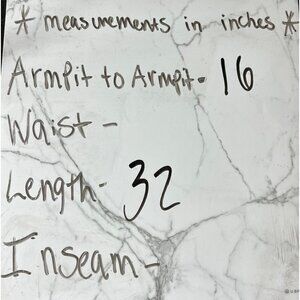 * measurements in inches *
Armpit to Armpit- 16
Waist -
Length- 32
Inseam -